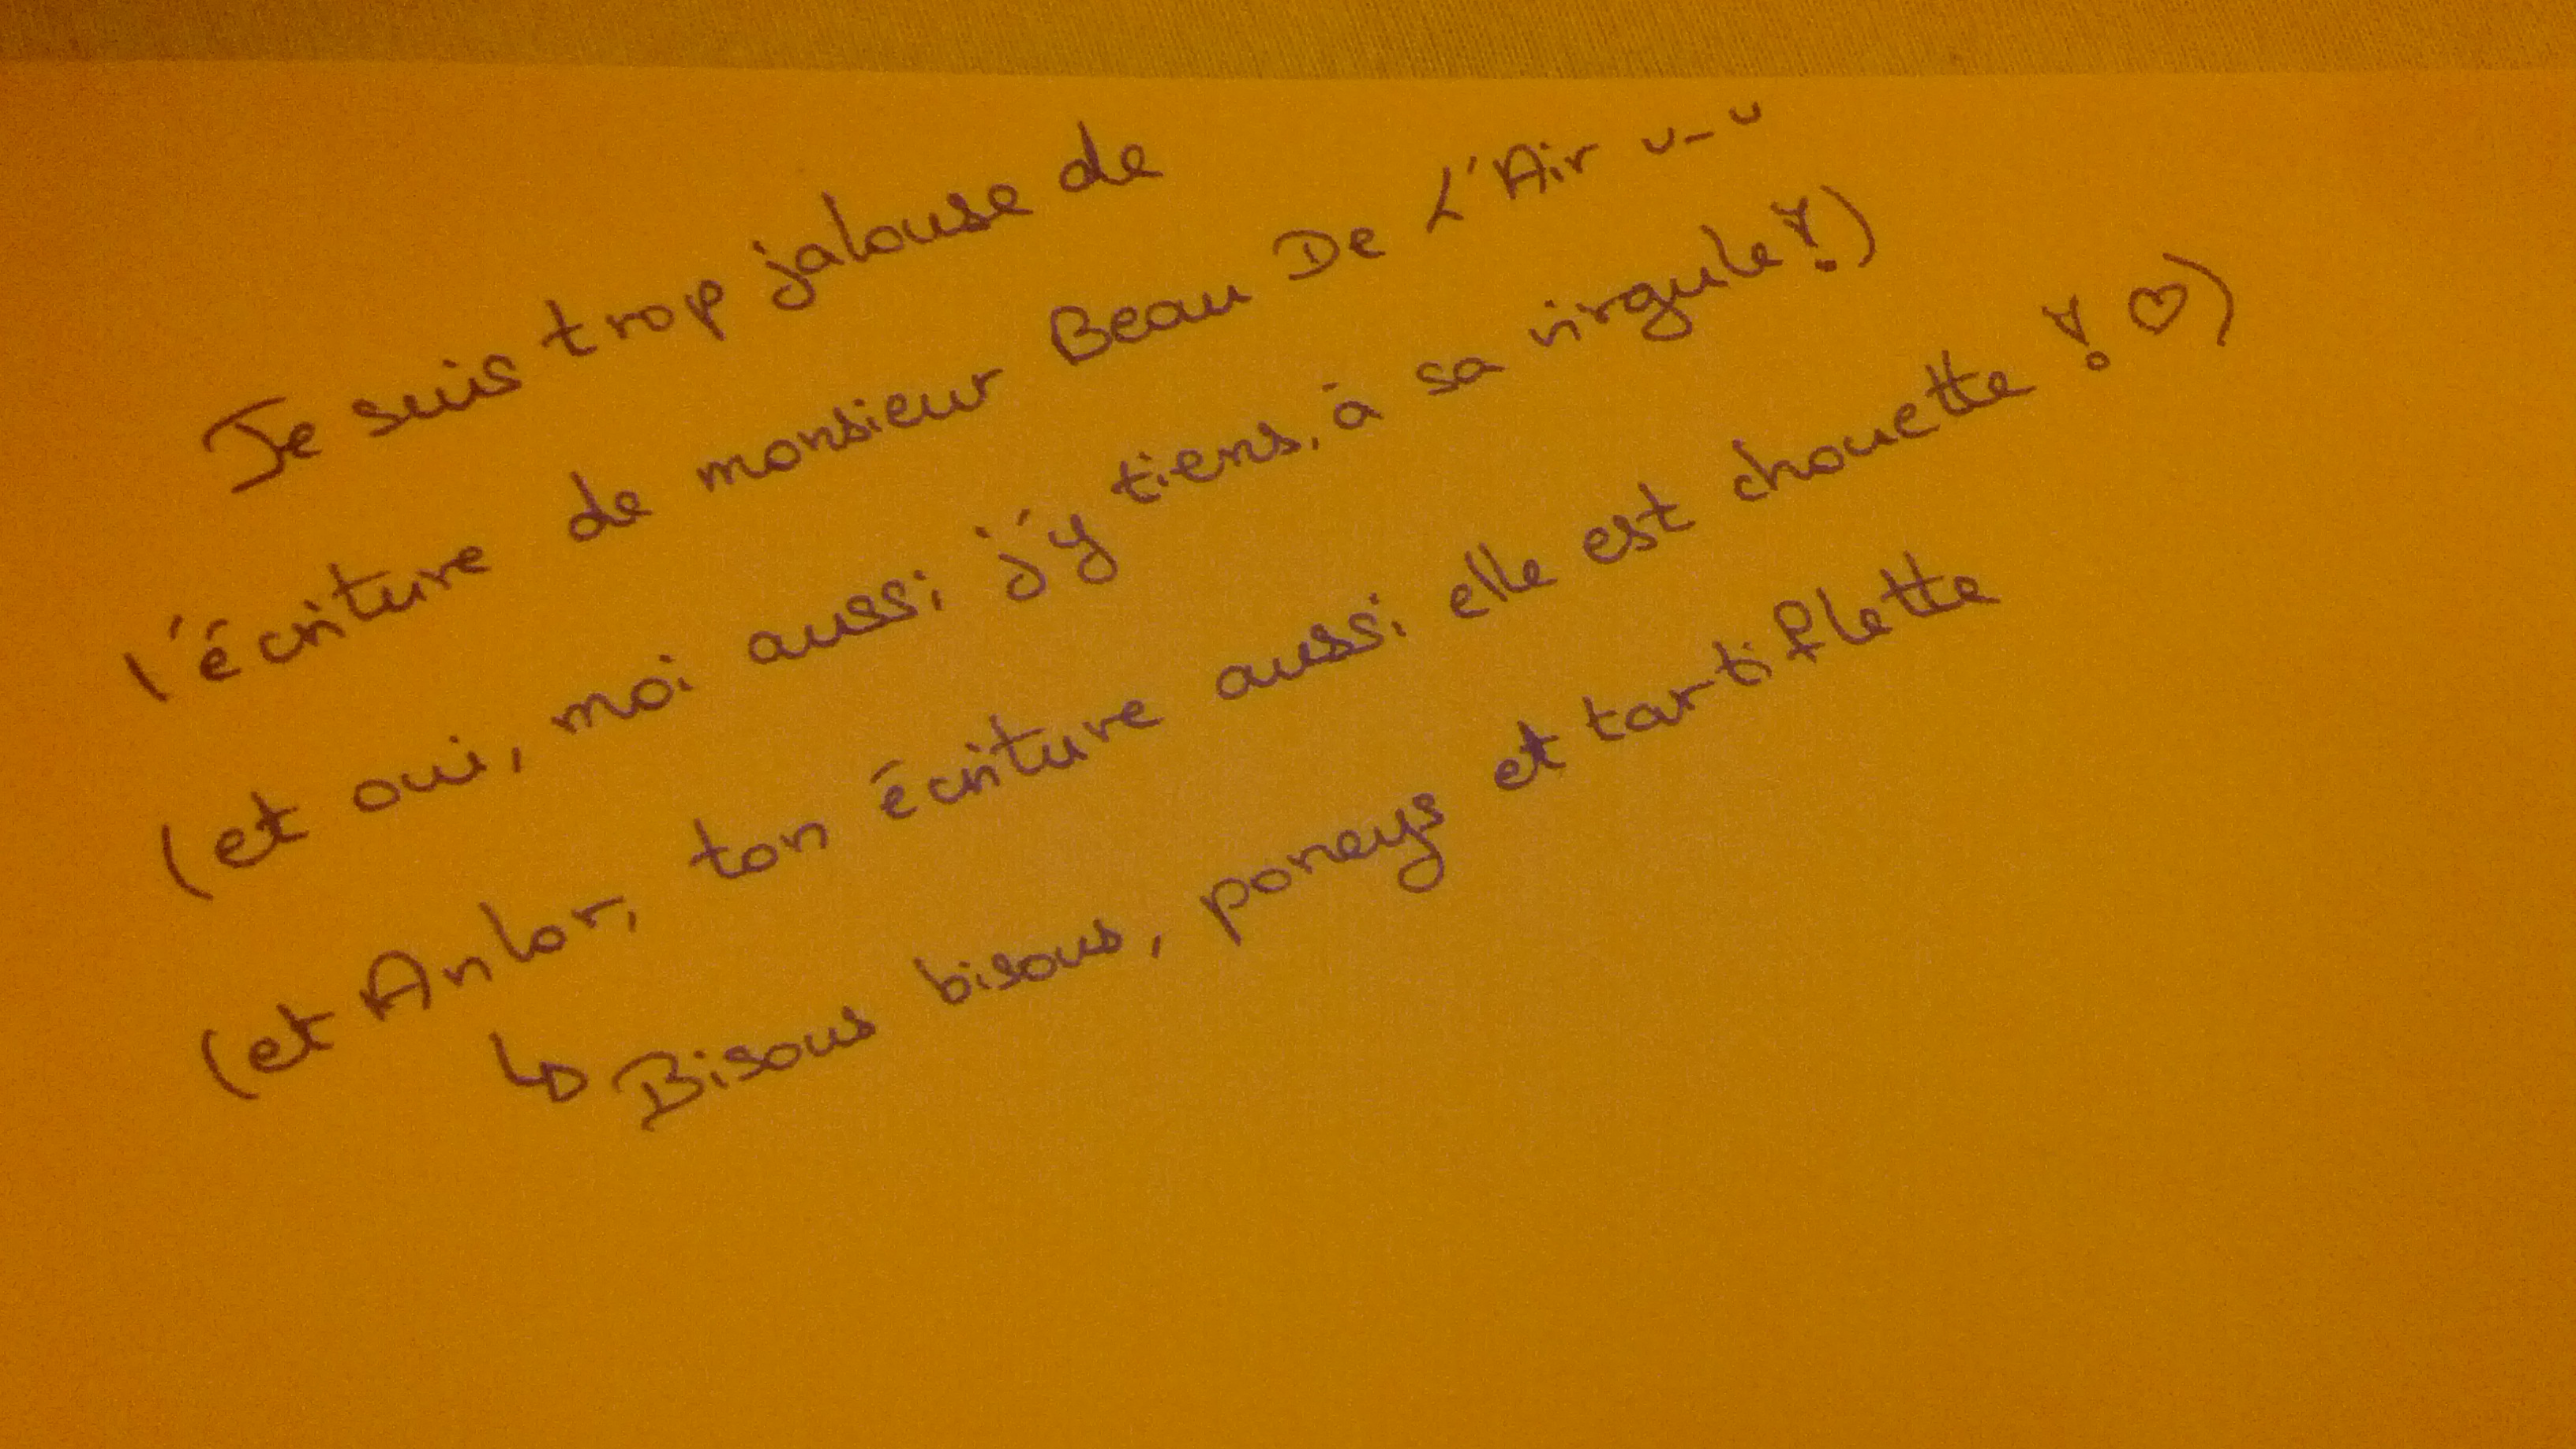 Je suis trop jalouse de
l'écriture de monsieur Beau De L'Air u_u
(et oui, moi aussi j'y tiens, à sa virgule !)
(et Anlor, ton écriture aussi elle est chouette ! ♡)
↳ Bisous bisous, poneys et tartiflette